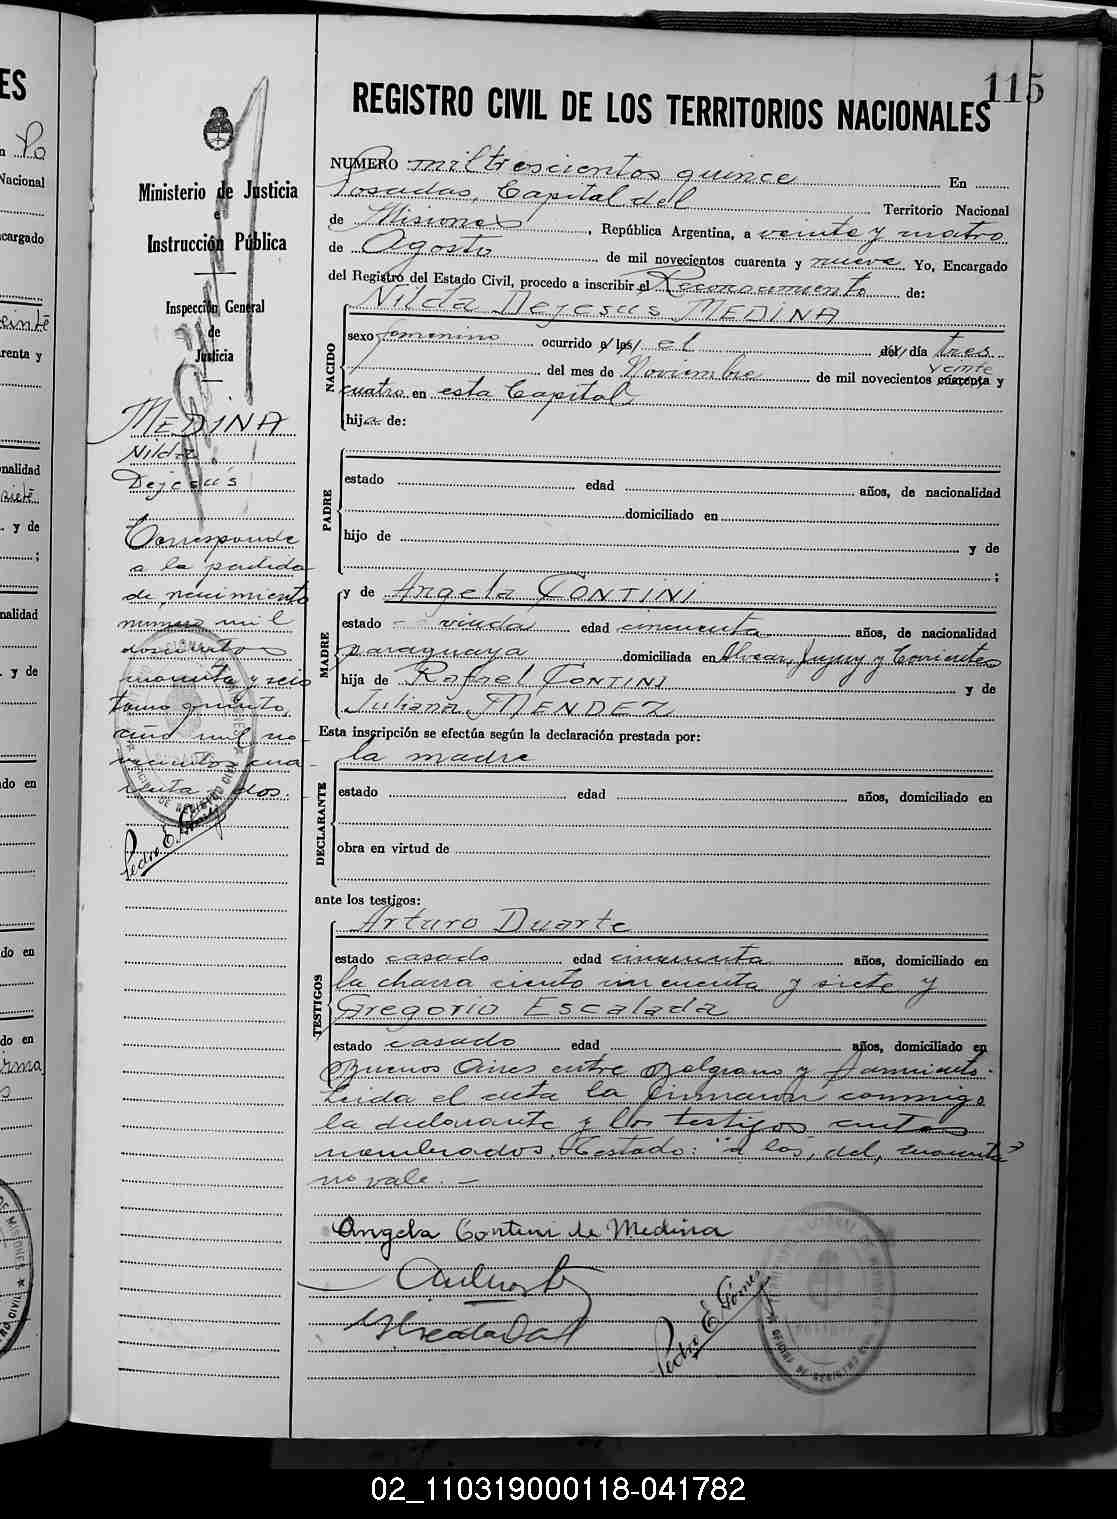 115
REGISTRO CIVIL DE LOS TERRITORIOS NACIONALES
Ministerio de Justicia
e
Instrucción Pública
Inspección General
de
Justicia
MEDINA
Nilda
Dejesús
Corresponde
a la partida
de nacimiento
numero mil
doscientos
cuarenta y seis
tomo quinto,
año mil no-
vecientos cua-
renta y dos.
Pedro E. Gómez
NUMERO miltrescientos quince En
Posadas, Capital del Territorio Nacional
de Misiones, República Argentina, a veinte y cuatro
de Agosto de mil novecientos cuarenta y nueve Yo, Encargado
del Registro del Estado Civil, procedo a inscribir el Reconocimiento de:
Nilda Dejesús MEDINA
NACIDO
sexo femenino ocurrido a/ las/ el del/ día tres
del mes de Noviembre de mil novecientos cuarenta veinte y
cuatro en esta Capital
hija de:
PADRE
estado edad años, de nacionalidad
domiciliado en
hijo de y de
;
MADRE
y de Angela CONTINI
estado viuda edad cincuenta años, de nacionalidad
paraguaya domiciliada en Alvear, Jujuy y Corrientes
hija de Rafael CONTINI y de
Juliana MENDEZ
Esta inscripción se efectúa según la declaración prestada por:
la madre
DECLARANTE
estado edad años, domiciliado en
obra en virtud de
ante los testigos:
TESTIGOS
Arturo Duarte
estado casado edad cincuenta años, domiciliado en
la chacra ciento cincuenta y siete y
Gregorio Escalada
estado casado edad años, domiciliado en
Buenos Aires entre Belgrano y Sarmiento.
Leida el acta la firmaron conmigo
la declarante y los testigos antes
nombrados. Testado: "a las, del, cuarenta"
no vale. —
Angela Contini de Medina
Pedro E. Gómez
02_110319000118-041782